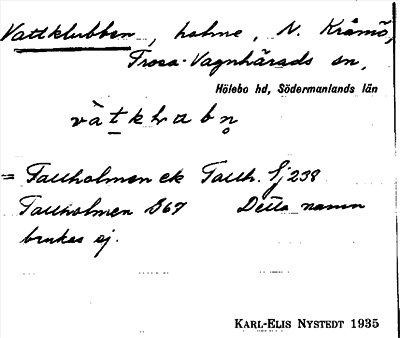 Vattklubben, holme, N. Kråmö,
Trosa-Vagnhärads sn,
Hölebo hd, Södermanlands län
= Tallholmen ek Tallh. Sj 238
Tallholmen 567 Detta namn
brukas ej.
KARL-ELIS NYSTEDT 1935